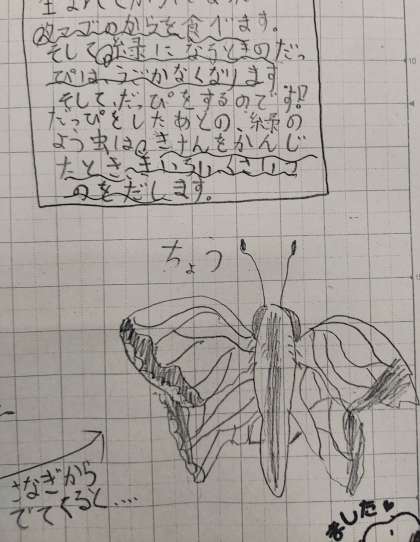 ②タマゴのからを食べます。
そして③緑になるときのだっ
ぴは、うごかなくなります
そして、だっぴをするのです。
だっぴをしたあとの、緑の
よう虫は④きけんをかんじ
たとき、きいろい、くさい、
のをだします。
ちょう
さなぎから
でてくると....
ました♥